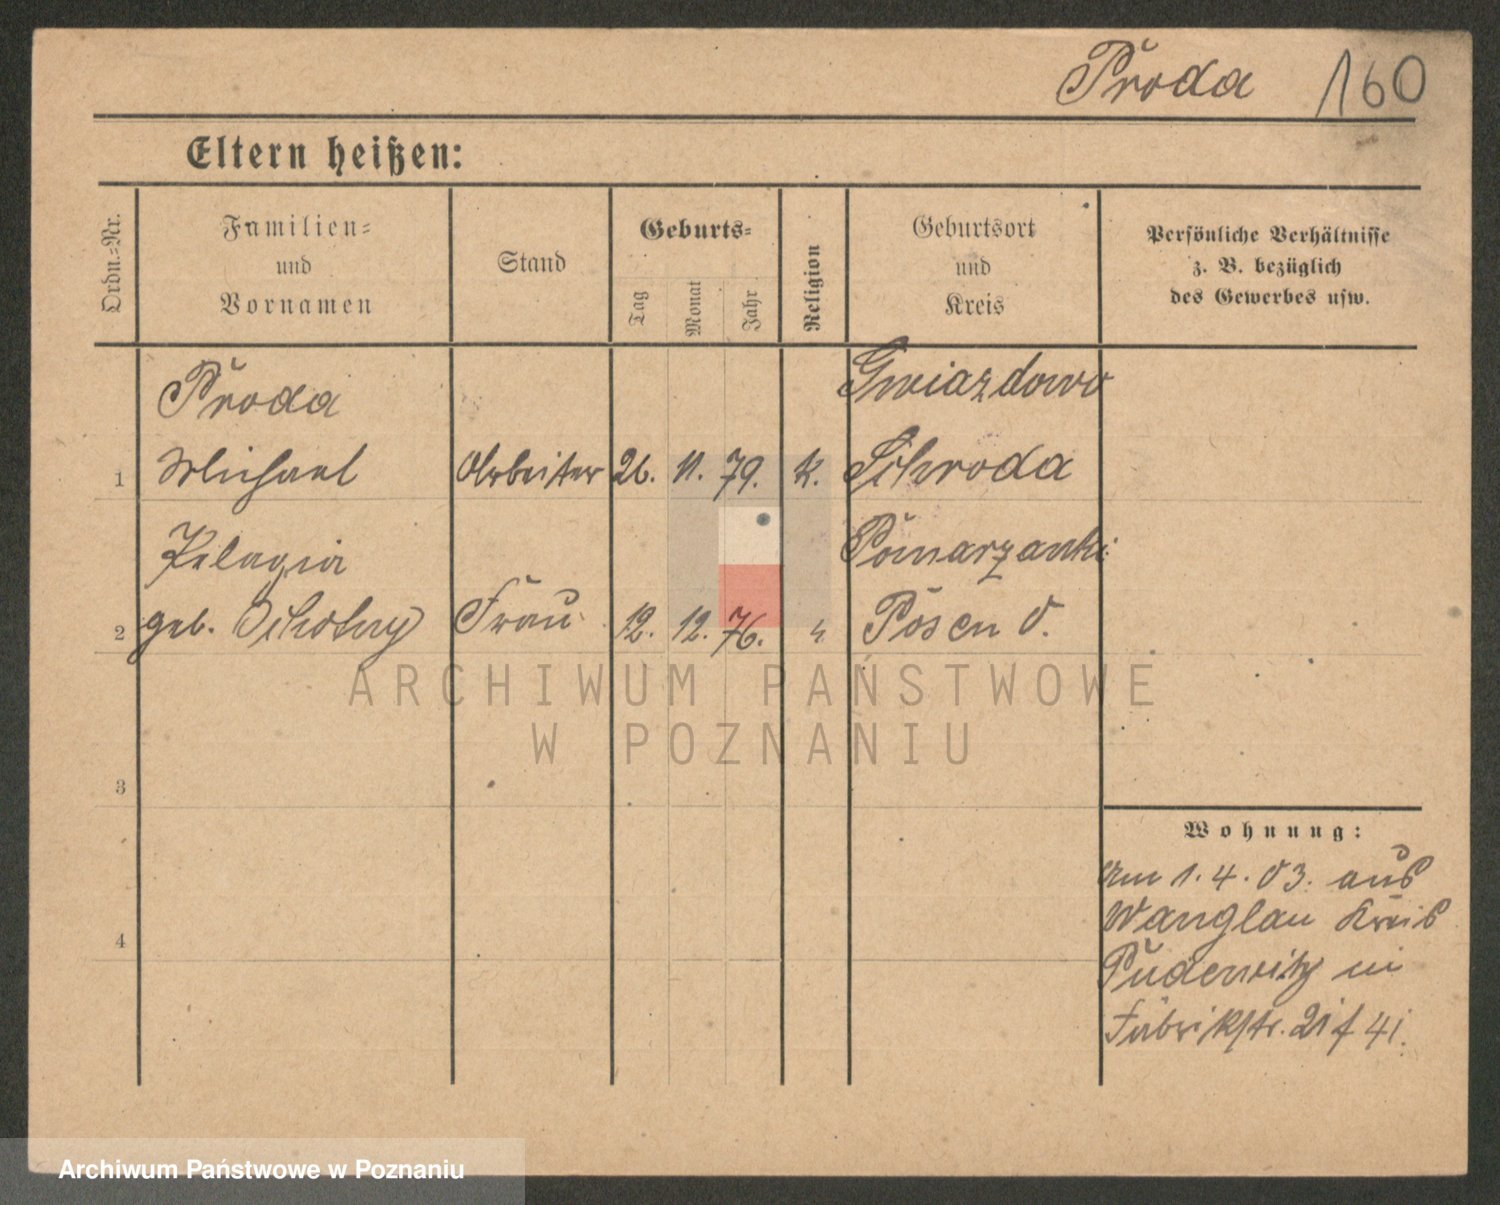 Proda 160
Eltern heißen:
Ordn.=Nr.
Familien=
und
Vornamen
Stand
Geburts=
Tag
Monat
Jahr
Religion
Geburtsort
und
Kreis
Persönliche Verhältnisse
z. B. bezüglich
des Gewerbes usw.
Proda Gwiazdowo
1 Michael Arbeiter 26. 11. 79. k. Schroda
Pelagia
2 geb. Frau 12. 12. 76. Posen O.
ARCHIWUM PAŃSTWOWE
W POZNANIU
3
Wohnung:
Am 1. 4. 03. aus
Kreis
4
Pudewitz in
Fabrikstr.
Archiwum Państwowe w Poznaniu